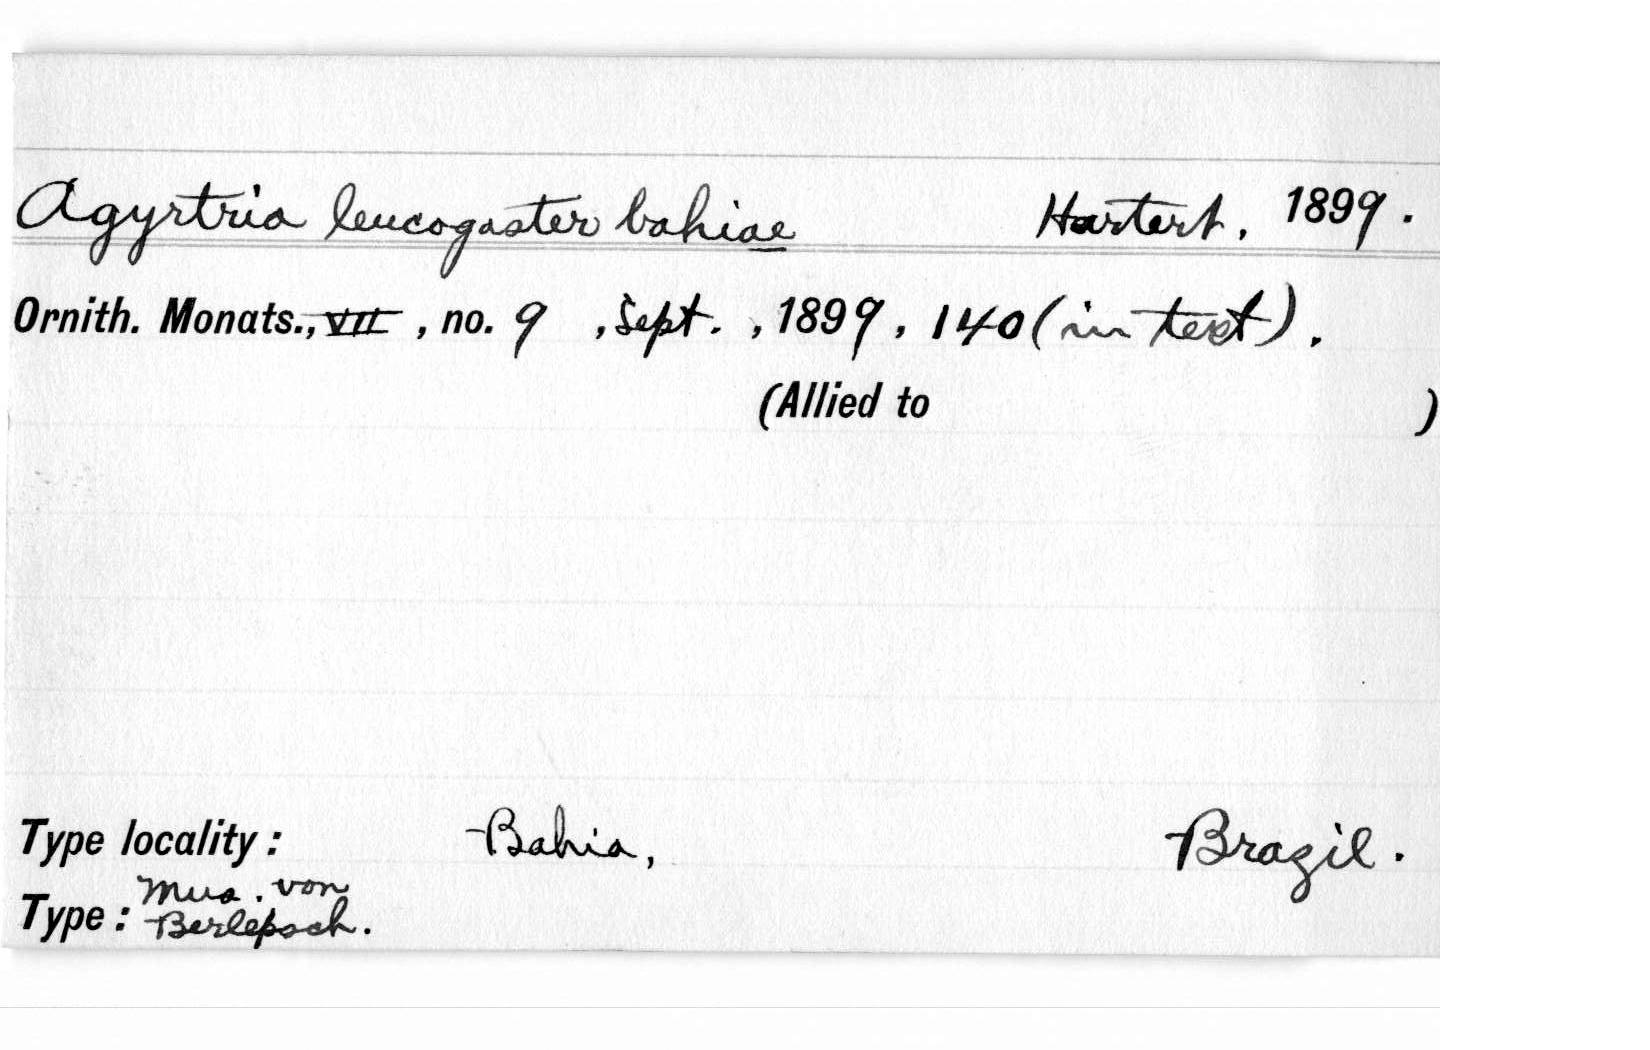 Agyrtria leucogaster bahiae Hartert, 1899.
Ornith. Monats., VII , no. 9 , Sept. , 1899 , 140 (in text) .
(Allied to )
Type locality : Bahia, Brazil .
Mus. von
Type : Berlepsch.